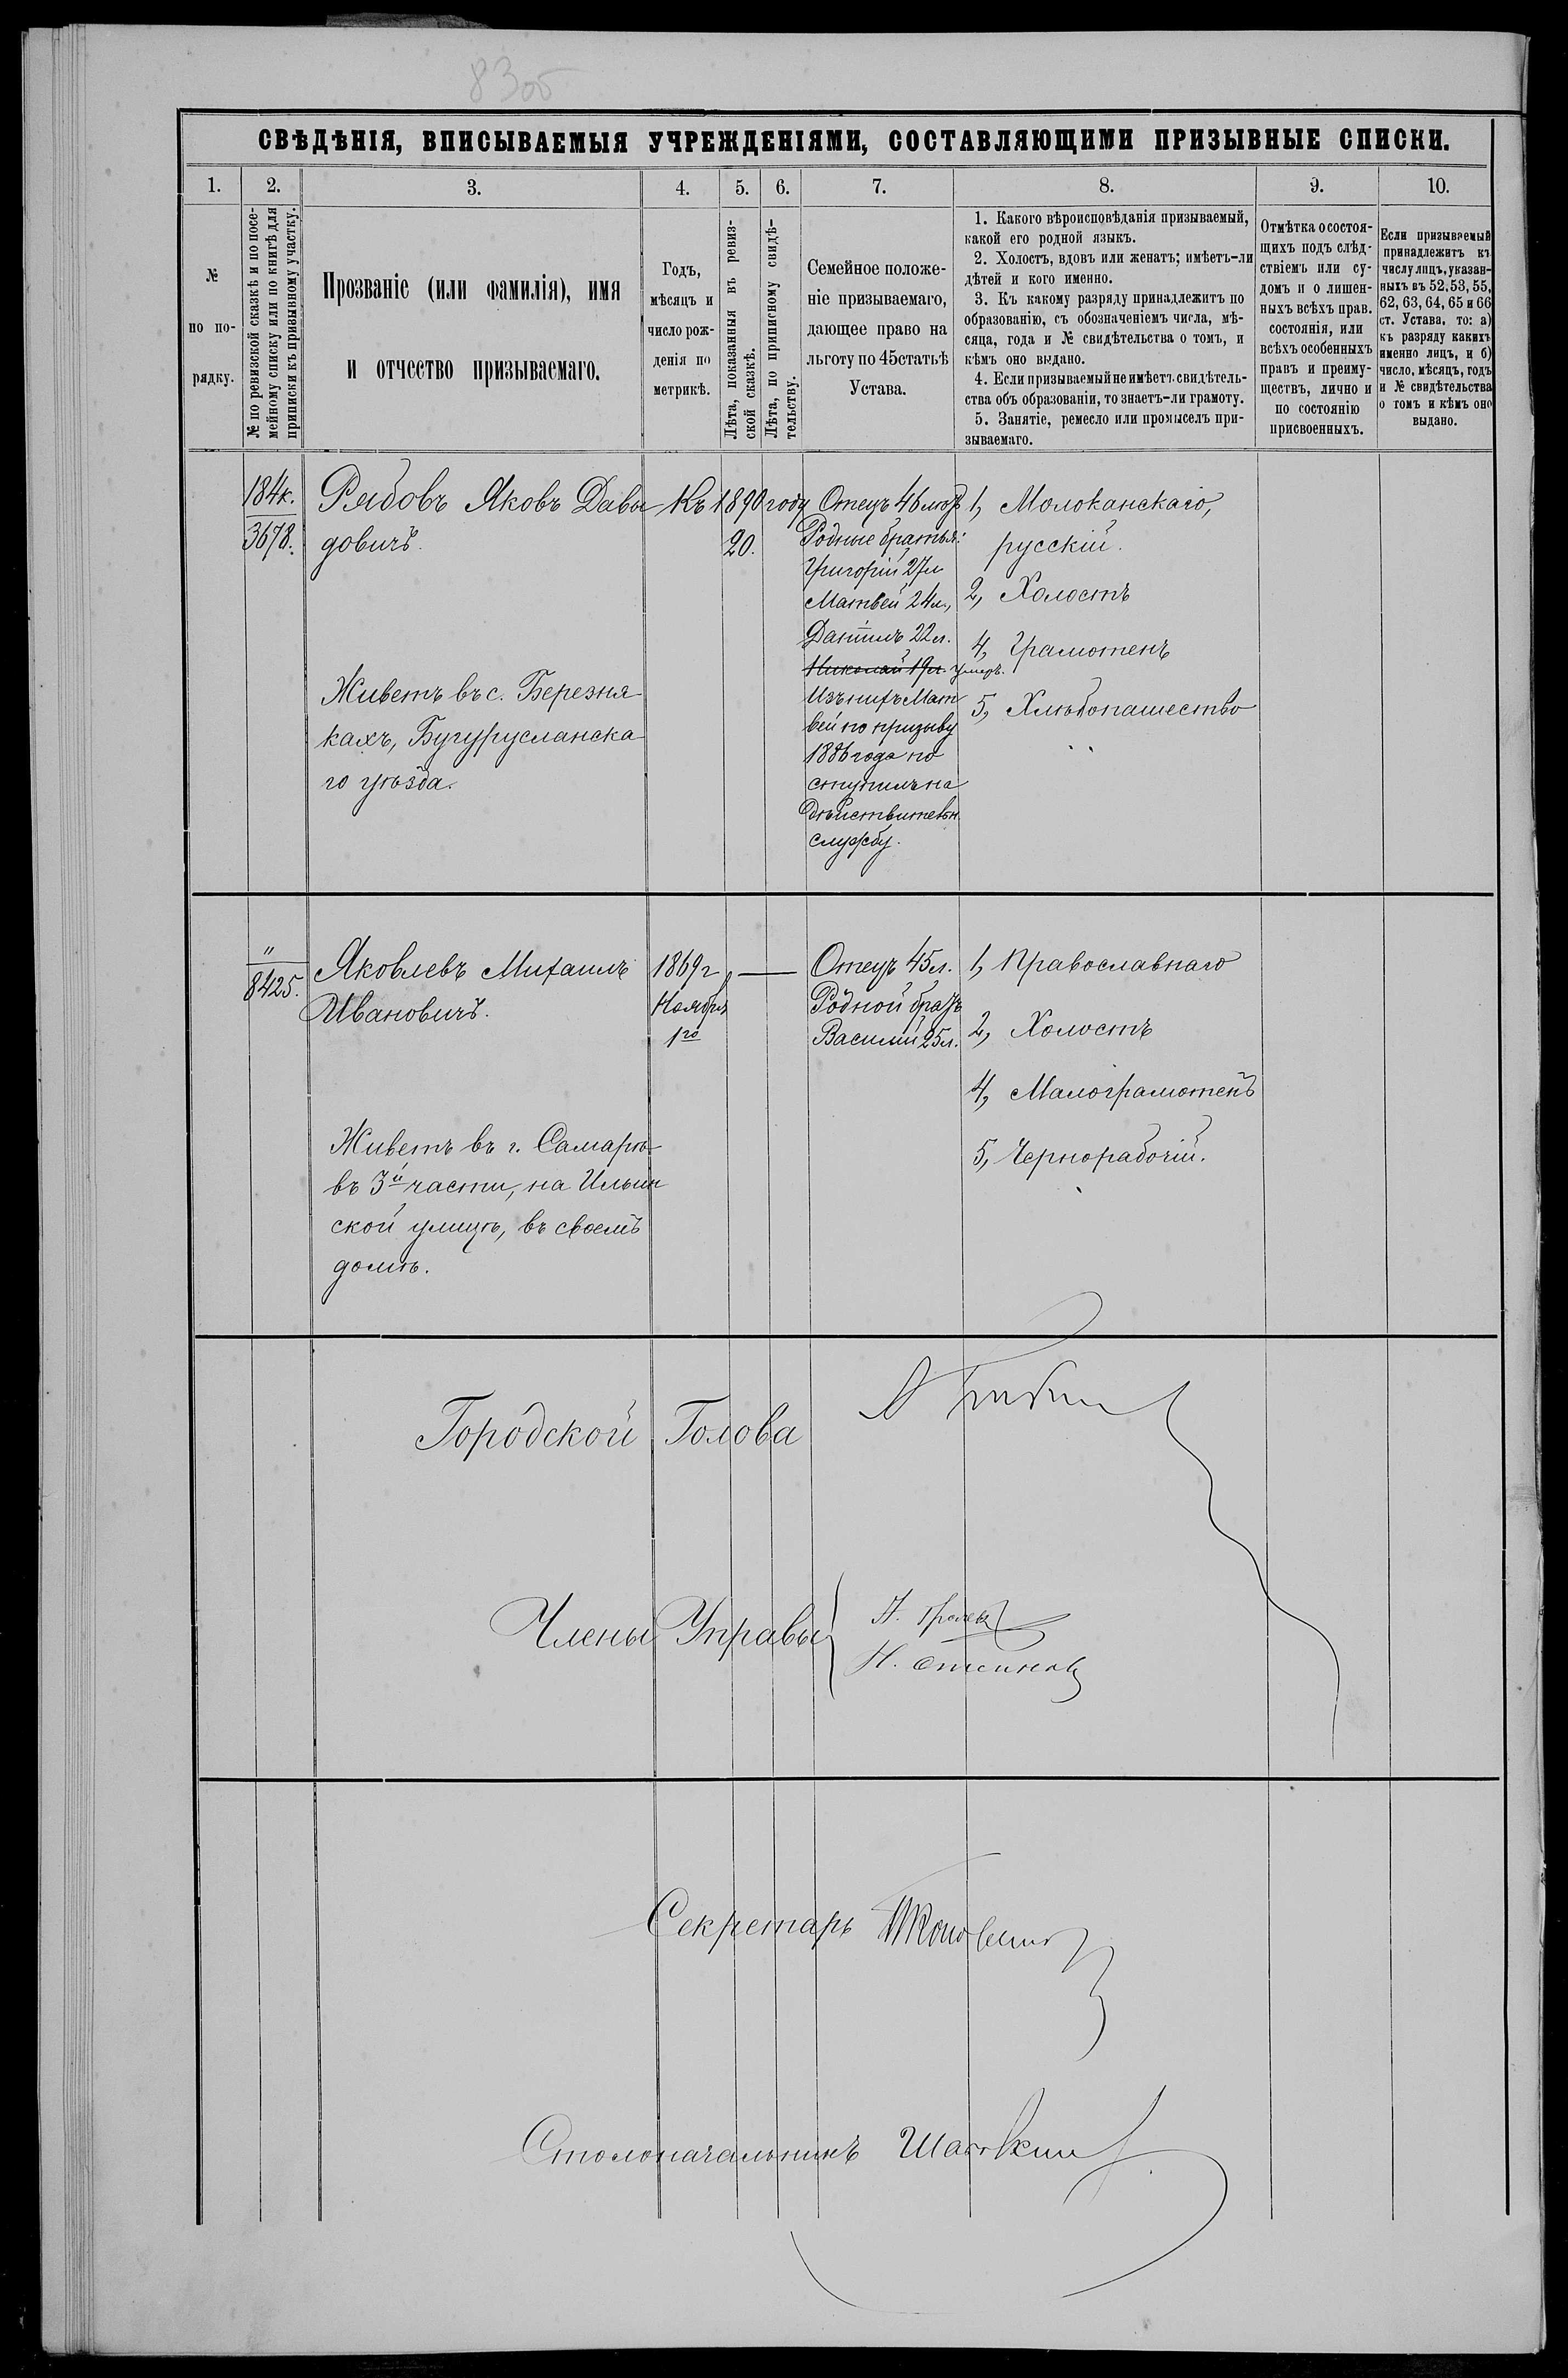 83об
СВѢДѢНІЯ, ВПИСЫВАЕМЫЯ УЧРЕЖДЕНІЯМИ, СОСТАВЛЯЮЩИМИ ПРИЗЫВНЫЕ СПИСКИ.
1.
2.
3.
4.
5.
6.
7.
8.
9.
10.
№
по по-
рядку.
№ по ревизской сказкѣ и по посе-
мейному списку или по книгѣ для
приписки къ призывному участку.
Прозваніе (или фамилія), имя
и отчество призываемаго.
Годъ,
мѣсяцъ и
число рож-
денія по
метрикѣ.
Лѣта, показанныя въ ревиз-
ской сказкѣ.
Лѣта, по приписному свидѣ-
тельству.
Семейное положе-
ніе призываемаго,
дающее право на
льготу по 45 статьѣ
Устава.
1. Какого вѣроисповѣданія призываемый,
какой его родной языкъ.
2. Холостъ, вдовъ или женатъ; имѣетъ-ли
дѣтей и кого именно.
3. Къ какому разряду принадлежитъ по
образованію, съ обозначеніемъ числа, мѣ-
сяца, года и № свидѣтельства о томъ, и
кѣмъ оно выдано.
4. Если призываемый не имѣетъ свидѣтель-
ства объ образованіи, то знаетъ-ли грамоту.
5. Занятіе, ремесло или промыселъ при-
зываемаго.
Отмѣтка о состоя-
щихъ подъ слѣд-
ствіемъ или су-
домъ и о лишен-
ныхъ всѣхъ прав.
состоянія, или
всѣхъ особенныхъ
правъ и преиму-
ществъ, лично и
по состоянію
присвоенныхъ.
Если призываемый
принадлежитъ къ
числу лицъ, указан-
ныхъ въ 52, 53, 55,
62, 63, 64, 65 и 66
ст. Устава, то: а)
къ разряду какихъ
именно лицъ, и б)
число, мѣсяцъ, годъ
и № свидѣтельства
о томъ и кѣмъ оно
выдано.
184к.
3678.
Рябовъ Яковъ Давы
довичъ.
Живетъ въ с. Березня
кахъ, Бугурусланска
го уѣзда.
Къ 1890 году
20.
Отецъ 46 лѣтъ
Родные братья:
Григорій 27л.
Матвей 24л.,
Даніилъ 22л.
Николай 19л. умеръ.
Изъ нихъ Мат
вей по призыву
1886 года по
ступилъ на
дѣйствительн.
службу.
1, Молоканскаго,
русскій.
2, Холостъ
4, Грамотенъ
5, Хлѣбопашество
"
8425.
Яковлевъ Михаилъ
Ивановичъ.
Живетъ въ г. Самарѣ
въ 3й части, на Ильин
ской улицѣ, въ своемъ
домѣ.
1869г
Ноября
1го
Отецъ 45л.
Родной братъ
Василій 25л.
1, Православнаго
2, Холостъ
4, Малограмотенъ
5, Чернорабочій.
Городской Голова
Члены Управы
Секретарь
Столоначальникъ